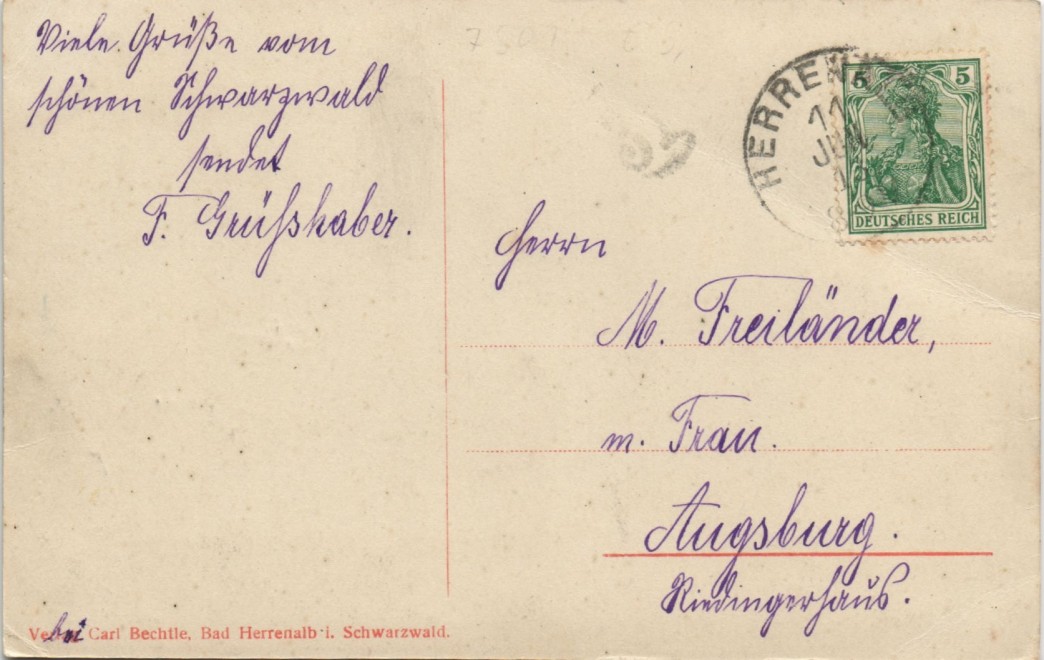 Viele Grüße vom
schönen Schwarzwald
sendet
F. Grühshaber.
HERREN
11
JUL
5 5
DEUTSCHES REICH
Herrn
M. Freiländer,
m. Frau.
Augsburg.
Riedingerhaus.
bei Carl Bechtle, Bad Herrenalb i. Schwarzwald.